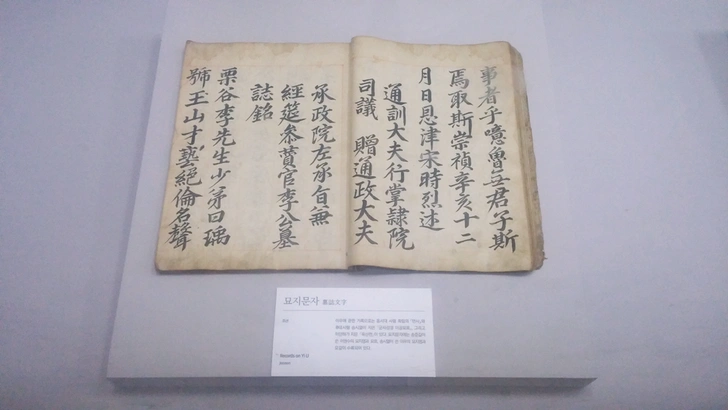 事者乎噫魯无君子斯
焉取斯崇禎辛亥十二
月日恩津宋時烈述
通訓大夫行掌隷院
司議 贈通政大夫
承政院左承旨兼
經筵參贊官李公墓
誌銘
栗谷李先生少弟曰瑀
號玉山才藝絶倫名聲
묘지문자 墓誌文字